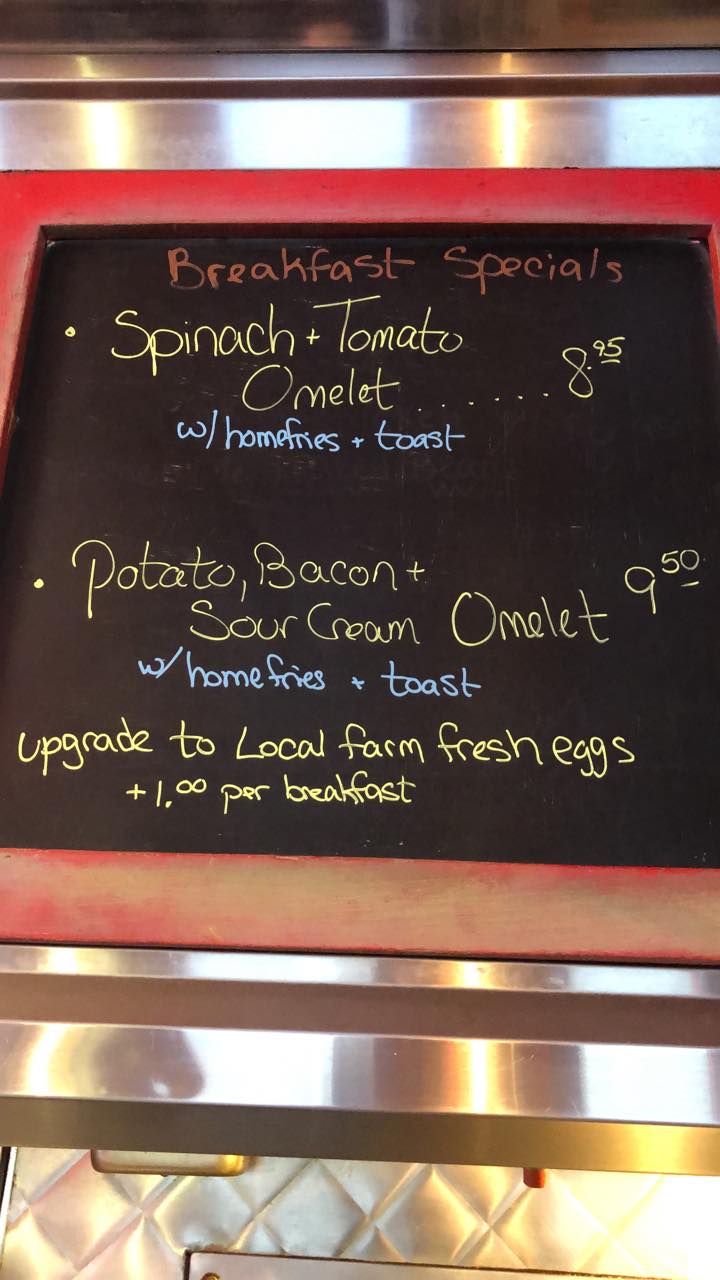 Breakfast Specials
• Spinach + Tomato
Omelet ....... 8.95
w/ homefries + toast
• Potato, Bacon +
Sour Cream Omelet 9 50
w/ homefries + toast
upgrade to Local farm fresh eggs
+1.00 per breakfast